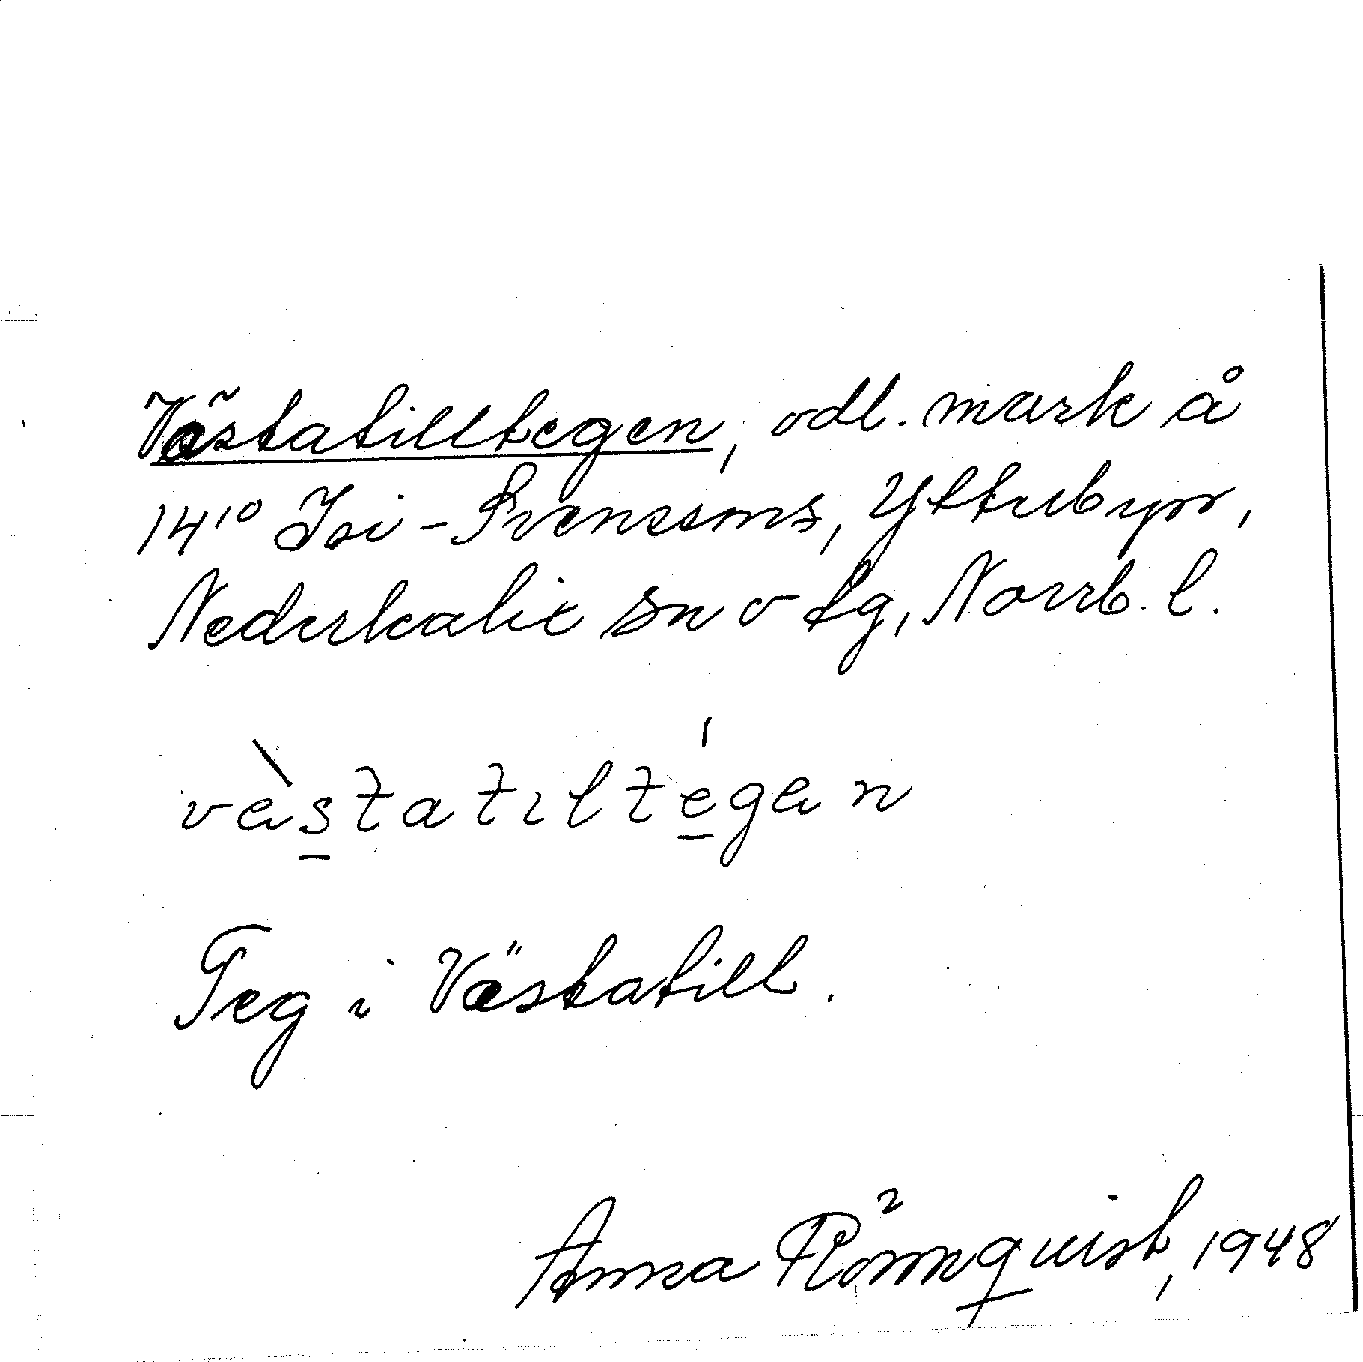 Västatilltegen, odl. mark å
14¹⁰ Isi-Svenssons, Ytterbyn,
Nederkalix sn o tg, Norrb. l.
vàstatıltégan
Teg i Västatill.
Anna Rönnquist, 1948